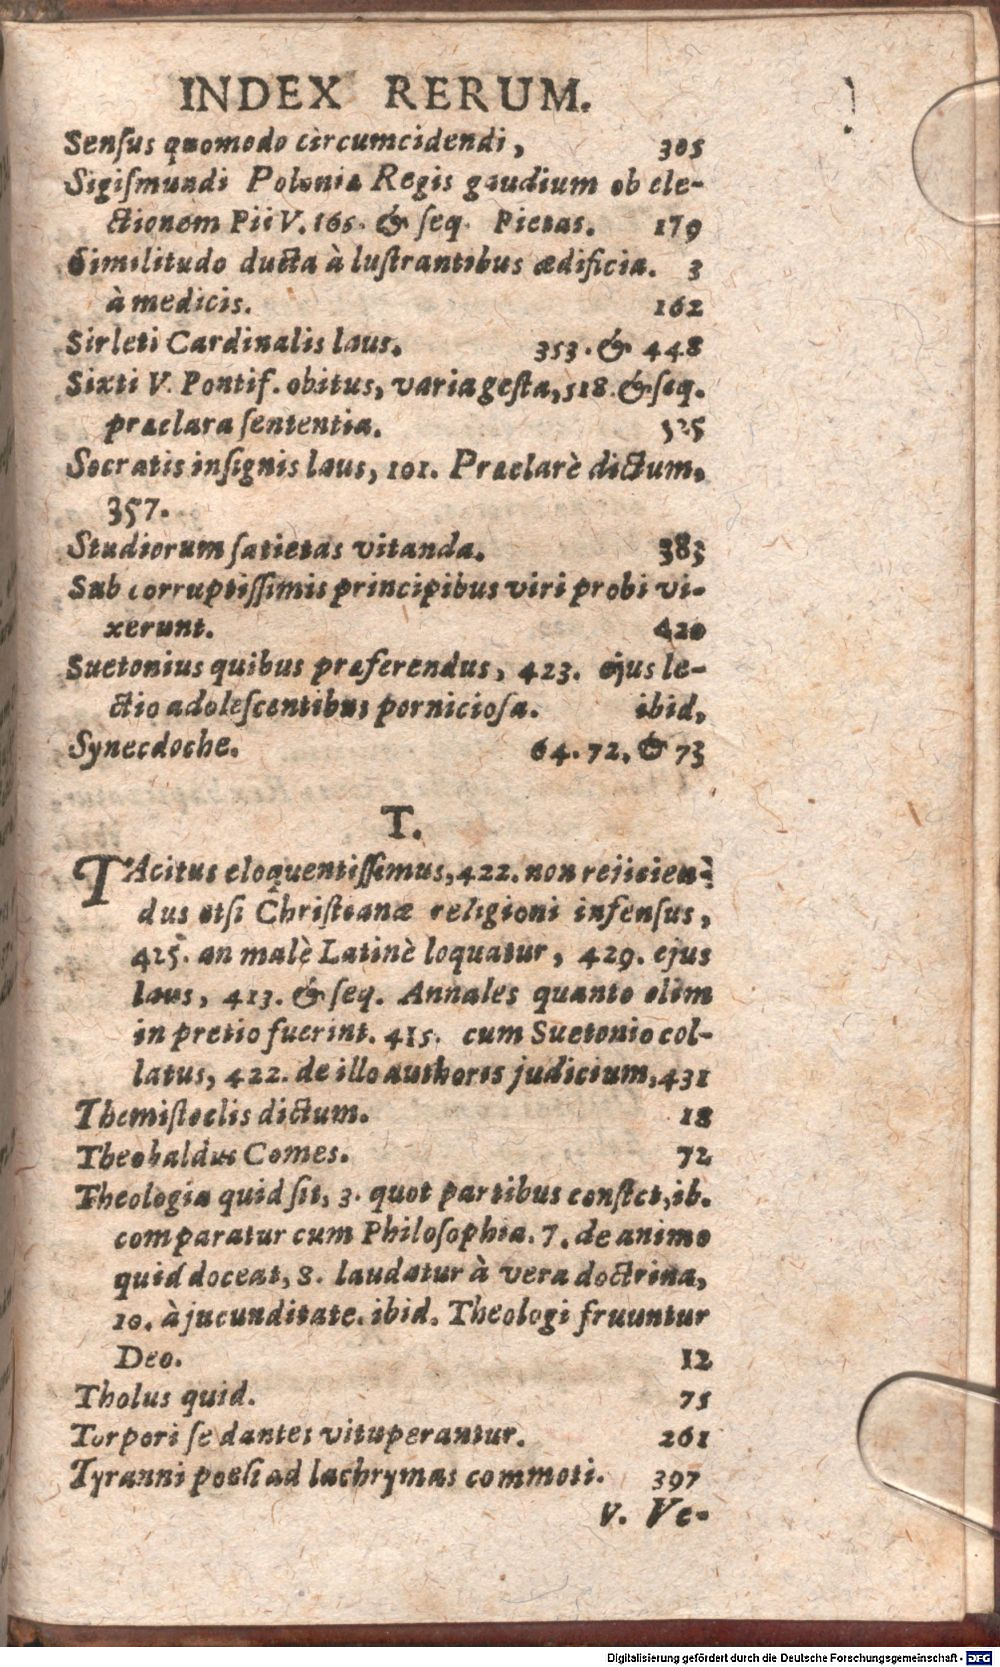 INDEX RERUM.
Senſus quomodo circumcidendi, 305
Sigiſmundi Poloniæ Regis gaudium ob ele-
ctionem Pii V. 165. & ſeq. Pietas. 179
Similitudo ducta à luſtrantibus ædificia. 3
à medicis. 162
Sirleti Cardinalis laus. 353. & 448
Sixti V. Pontif. obitus, varia geſta, 518. & ſeq.
præclara ſententia. 325
Socratis inſignis laus, 101. Præclarè dictum.
357.
Studiorum ſatietas vitanda. 383
Sub corruptiſſimis principibus viri probi vi-
xerunt. 420
Suetonius quibus præferendus, 423. ejus le-
ctio adoleſcentibus perniciosa. ibid,
Synecdoche. 64. 72. & 73
T.
TAcitus eloquentiſſimus, 422. non reiicien-
dus etſi Chriſtianæ religioni infenſus,
425. an malè Latinè loquatur, 429. ejus
laus, 413. & ſeq. Annales quanto olim
in pretio fuerint. 415. cum Suetonio col-
latus, 422. de illo authoris judicium, 431
Themiſtoclis dictum. 18
Theobaldus Comes. 72
Theologia quid ſit, 3. quot partibus conſtet, ib.
comparatur cum Philoſophia. 7. de animo
quid doceat, 8. laudatur à vera doctrina,
10. à jucunditate. ibid. Theologi fruuntur
Deo. 12
Tholus quid. 75
Torpori ſe dantes vituperantur. 261
Tyranni poëſi ad lachrymas commoti. 397
V. Ve-
Digitalisierung gefördert durch die Deutsche Forschungsgemeinschaft - DFG